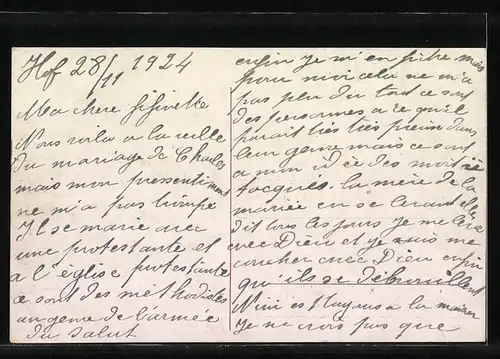 Hof 28/11 1924
Ma chere Fifinette
Nous voila a la veille
du mariage de Charles
mais mon pressentiment
ne m'a pas trompé
Il se marie avec
une protestante et
a l'église protestante
ce sont des méthodistes
un genre de l'armée
du salut
enfin je m'en fiche mais
pour moi cela ne m'a
pas plu du tout ce sont
des personnes a ce qu'il
parait très très pieuse dans
leur genre mais ce sont
a mon idée des
toqués. la mère de la
mariée en se levant
dit tous les jours je me lève
avec Dieu et je vais me
coucher avec Dieu enfin
qu'ils se débrouillent
Nini est toujours a la
je ne crois pas que